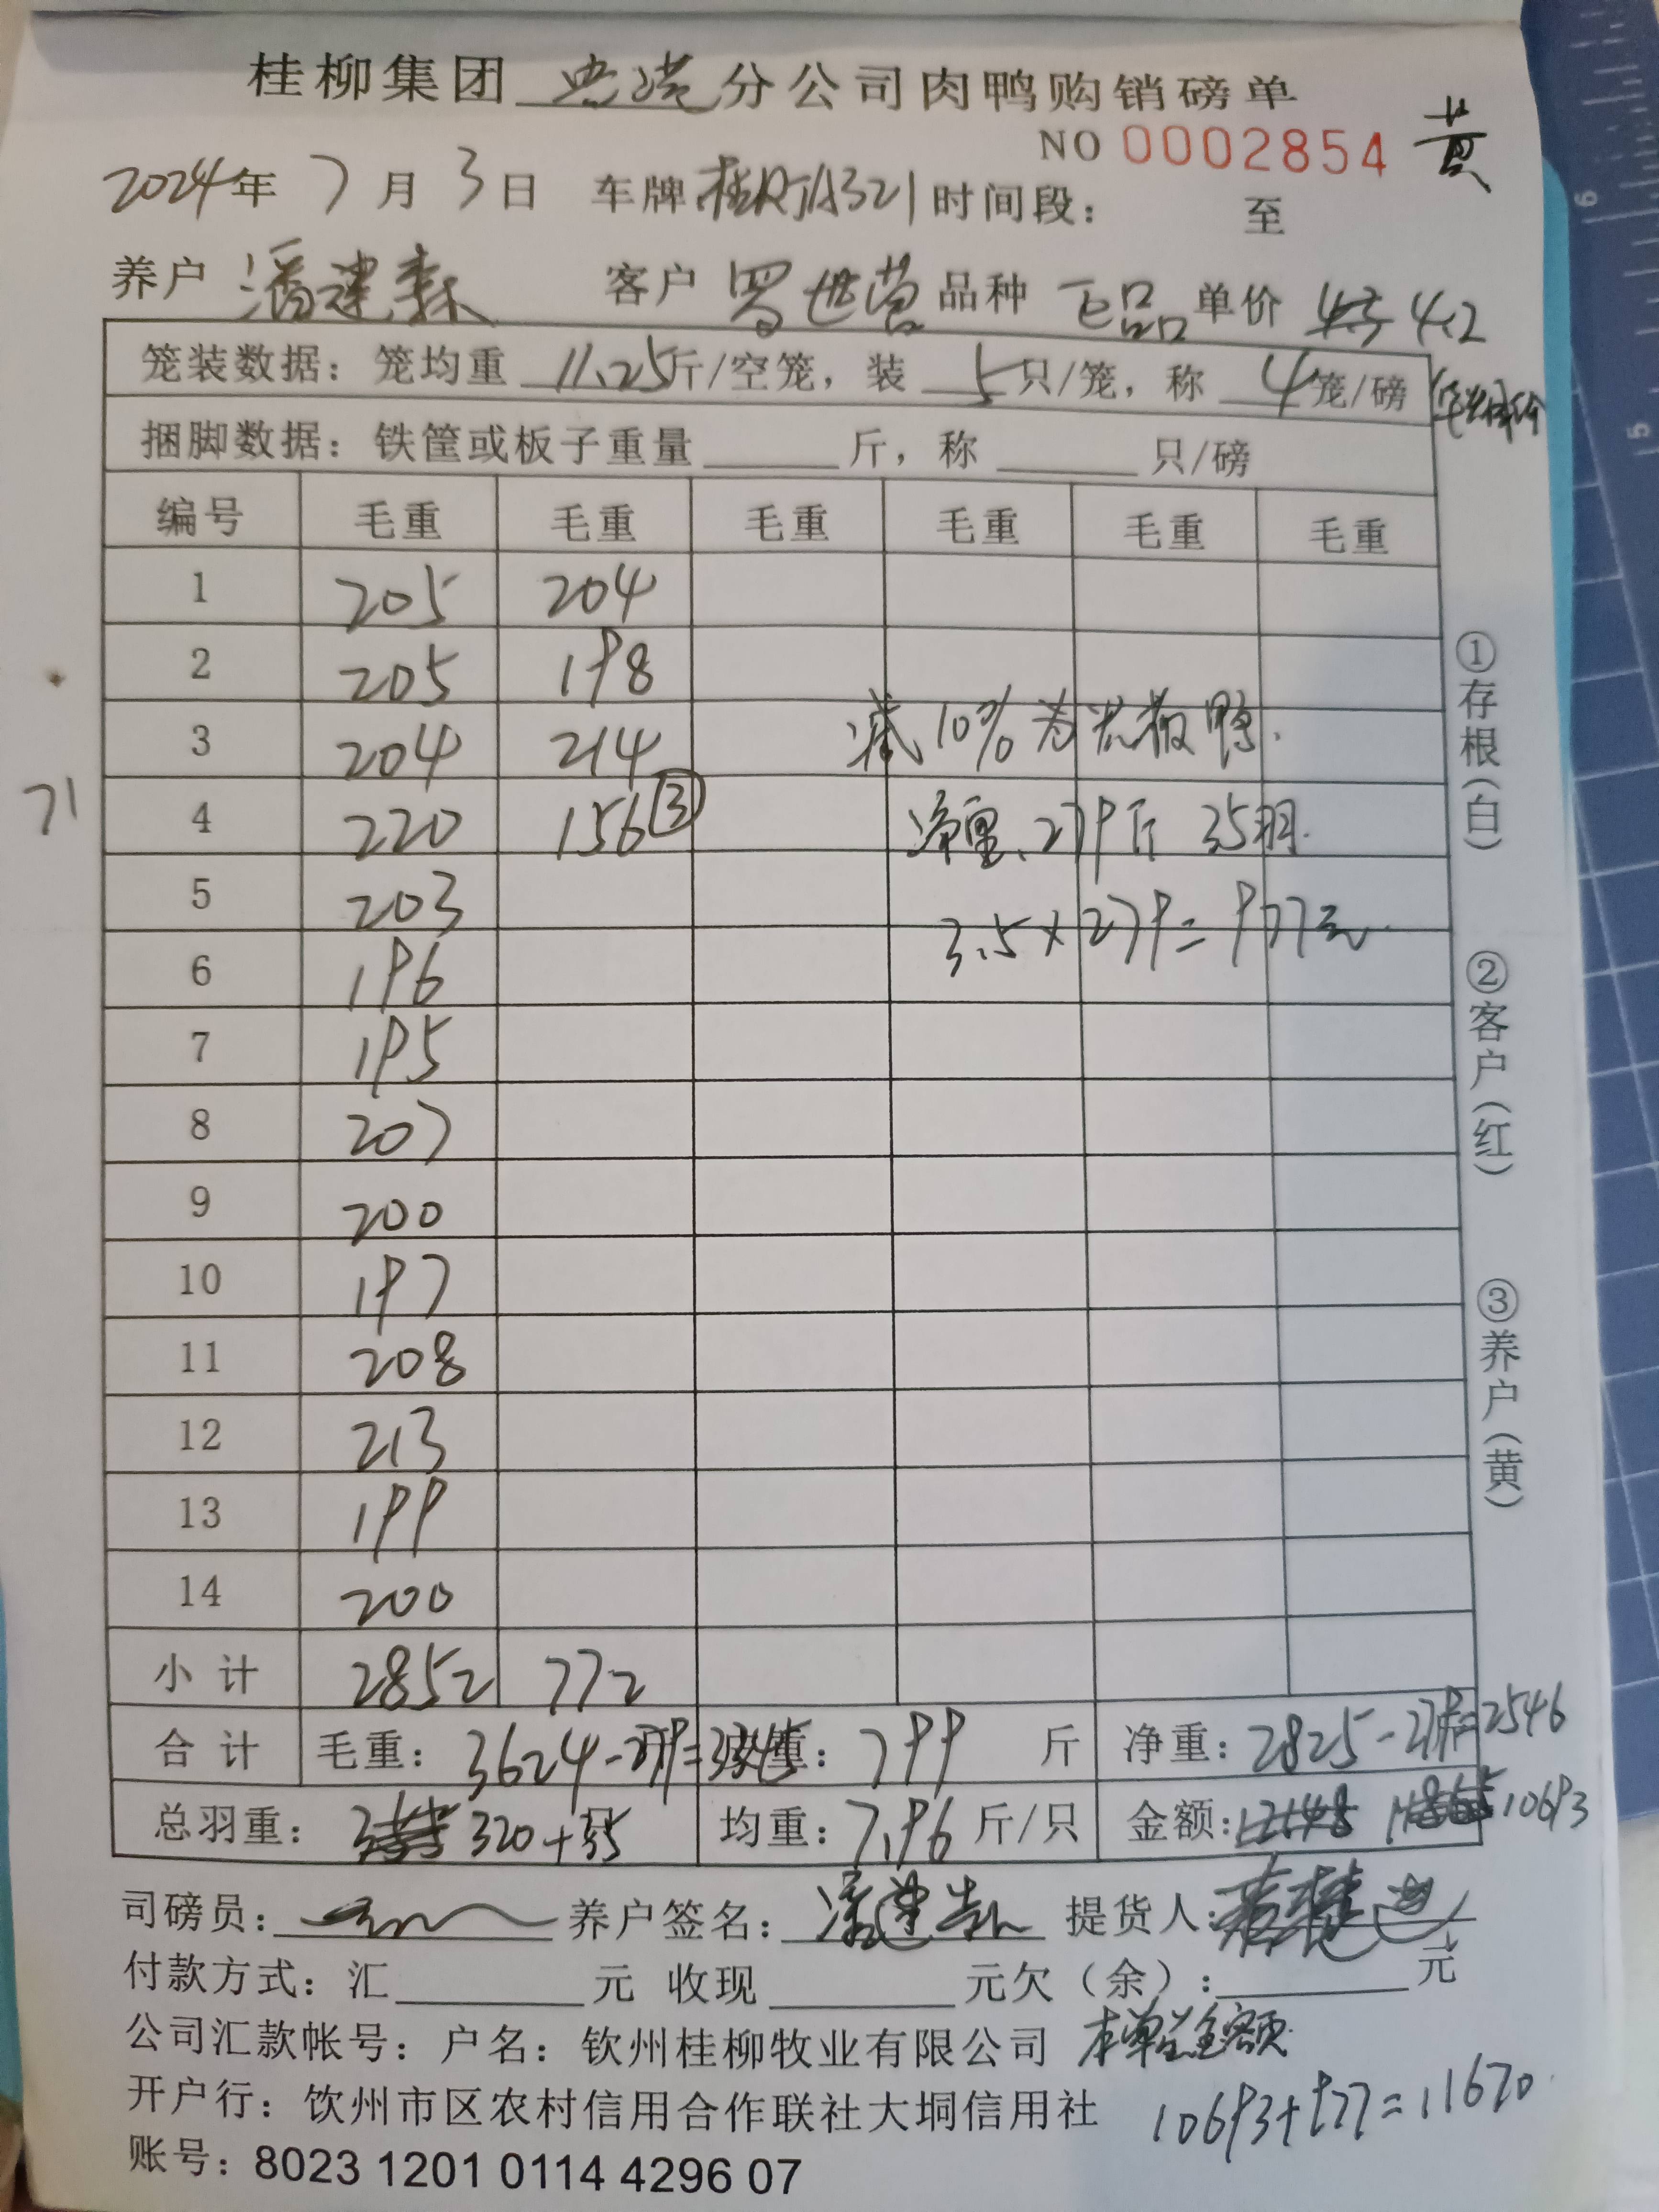 桂柳集团 分公司肉鸭购销磅单
NO 0002854 黄
2024年 7月 3日 车牌 时间段： 至
养户 潘建森 客户 罗世营 品种 单价 4.2
笼装数据：笼均重 11.25斤/空笼，装 5只/笼，称 4笼/磅
捆脚数据：铁筐或板子重量 斤，称 只/磅
编号 毛重 毛重 毛重 毛重 毛重 毛重
1 205 204
2 205 198
3 204 214 减10%为光板鸭.
71 4 220 156 ③ 净重、279斤 35羽.
5 203 3.5×279=977元
6 196
7 195
8 207
9 200
10 197
11 208
12 213
13 199
14 200
小计 2852 772
合计 毛重：3624-279=3345 重：799 斤 净重：2825-279=2546
总羽重： 320+35 均重：7.96斤/只 金额： 10693
司磅员： 养户签名： 提货人：
付款方式：汇 元 收现 元欠（余）： 元
公司汇款帐号：户名：钦州桂柳牧业有限公司 本单总金额
开户行：钦州市区农村信用合作联社大垌信用社 10693+977=11670
账号：8023 1201 0114 4296 07
①存根（白）
②客户（红）
③养户（黄）
6
5